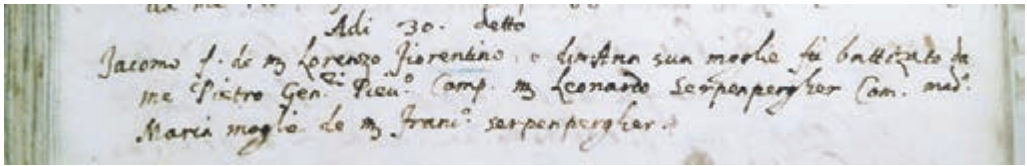 Adi 30. detto
Jacomo f. de m Lorenzo Fiorentino, e sua moglie fu battezato da
me Pietro Gen. Pieu.º Comp. m Leonardo Serpenpergher Com. mad.ª
Maria moglie de m Franc.º Serpenpergher.